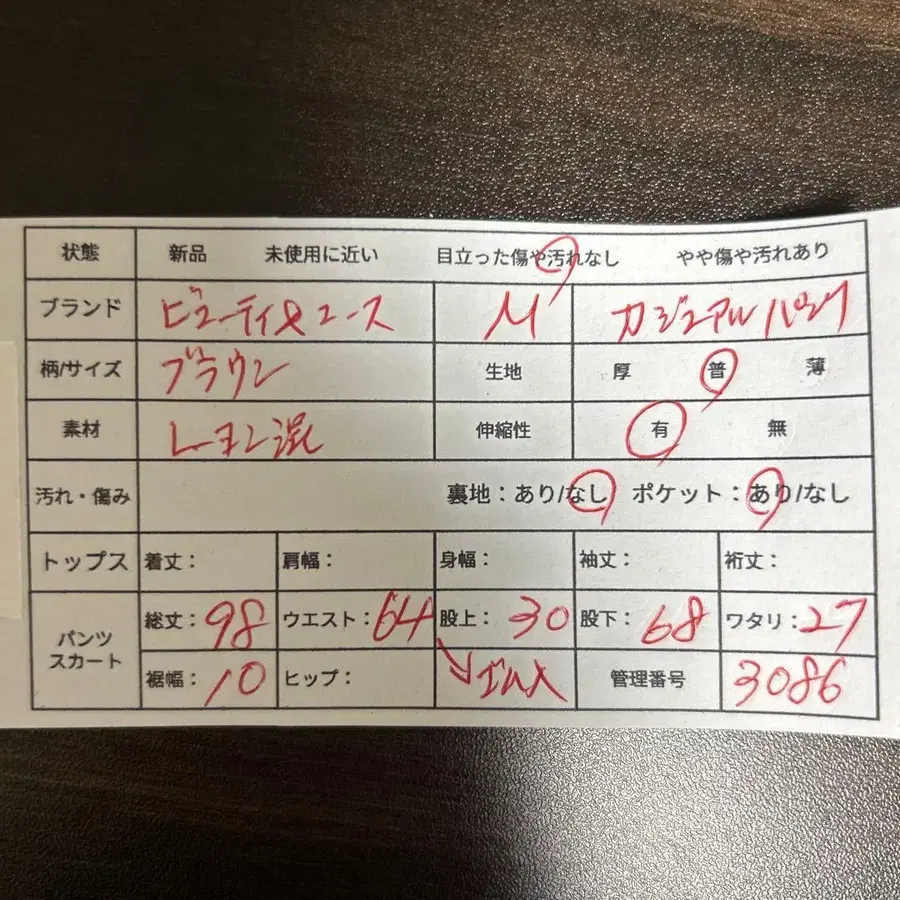 状態 新品 未使用に近い 目立った傷や汚れなし やや傷や汚れあり
ブランド ビューティ&ユース M カジュアルパンツ
柄/サイズ ブラウン 生地 厚 普 薄
素材 レーヨン混 伸縮性 有 無
汚れ・傷み 裏地：あり/なし ポケット：あり/なし
トップス 着丈： 肩幅： 身幅： 袖丈： 裄丈：
パンツ スカート 総丈：98 ウエスト：64 股上：30 股下：68 ワタリ：27
裾幅：10 ヒップ： ゴム入 管理番号 3086